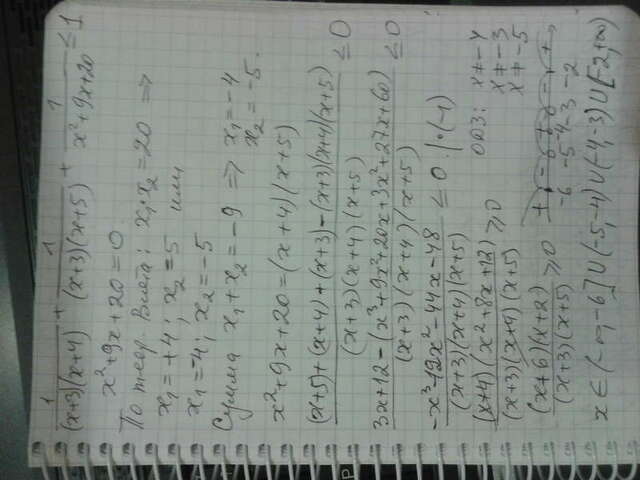 1/((x+3)(x+4)) + 1/((x+3)(x+5)) + 1/(x²+9x+20) ≤ 1
x²+9x+20=0.
По теор. Виета: x₁·x₂=20 ⇒
x₁=+4; x₂=5 или
x₁=-4; x₂=-5
Сумма x₁+x₂=-9 ⇒ x₁=-4
x₂=-5.
x²+9x+20=(x+4)(x+5)
((x+5)+(x+4)+(x+3)-(x+3)(x+4)(x+5))/((x+3)(x+4)(x+5)) ≤0
(3x+12-(x³+9x²+20x+3x²+27x+60))/((x+3)(x+4)(x+5)) ≤0
(-x³-12x²-44x-48)/((x+3)(x+4)(x+5)) ≤ 0 |·(-1)
((x+4)(x²+8x+12))/((x+3)(x+4)(x+5)) ≥0 ОДЗ: x≠-4
x≠-3
x≠-5
((x+6)(x+2))/((x+3)(x+5)) ≥0
+ - + + - +
-6 -5 -4 -3 -2
x∈(-∞,-6]∪(-5,-4)∪(-4,-3)∪[-2,+∞)